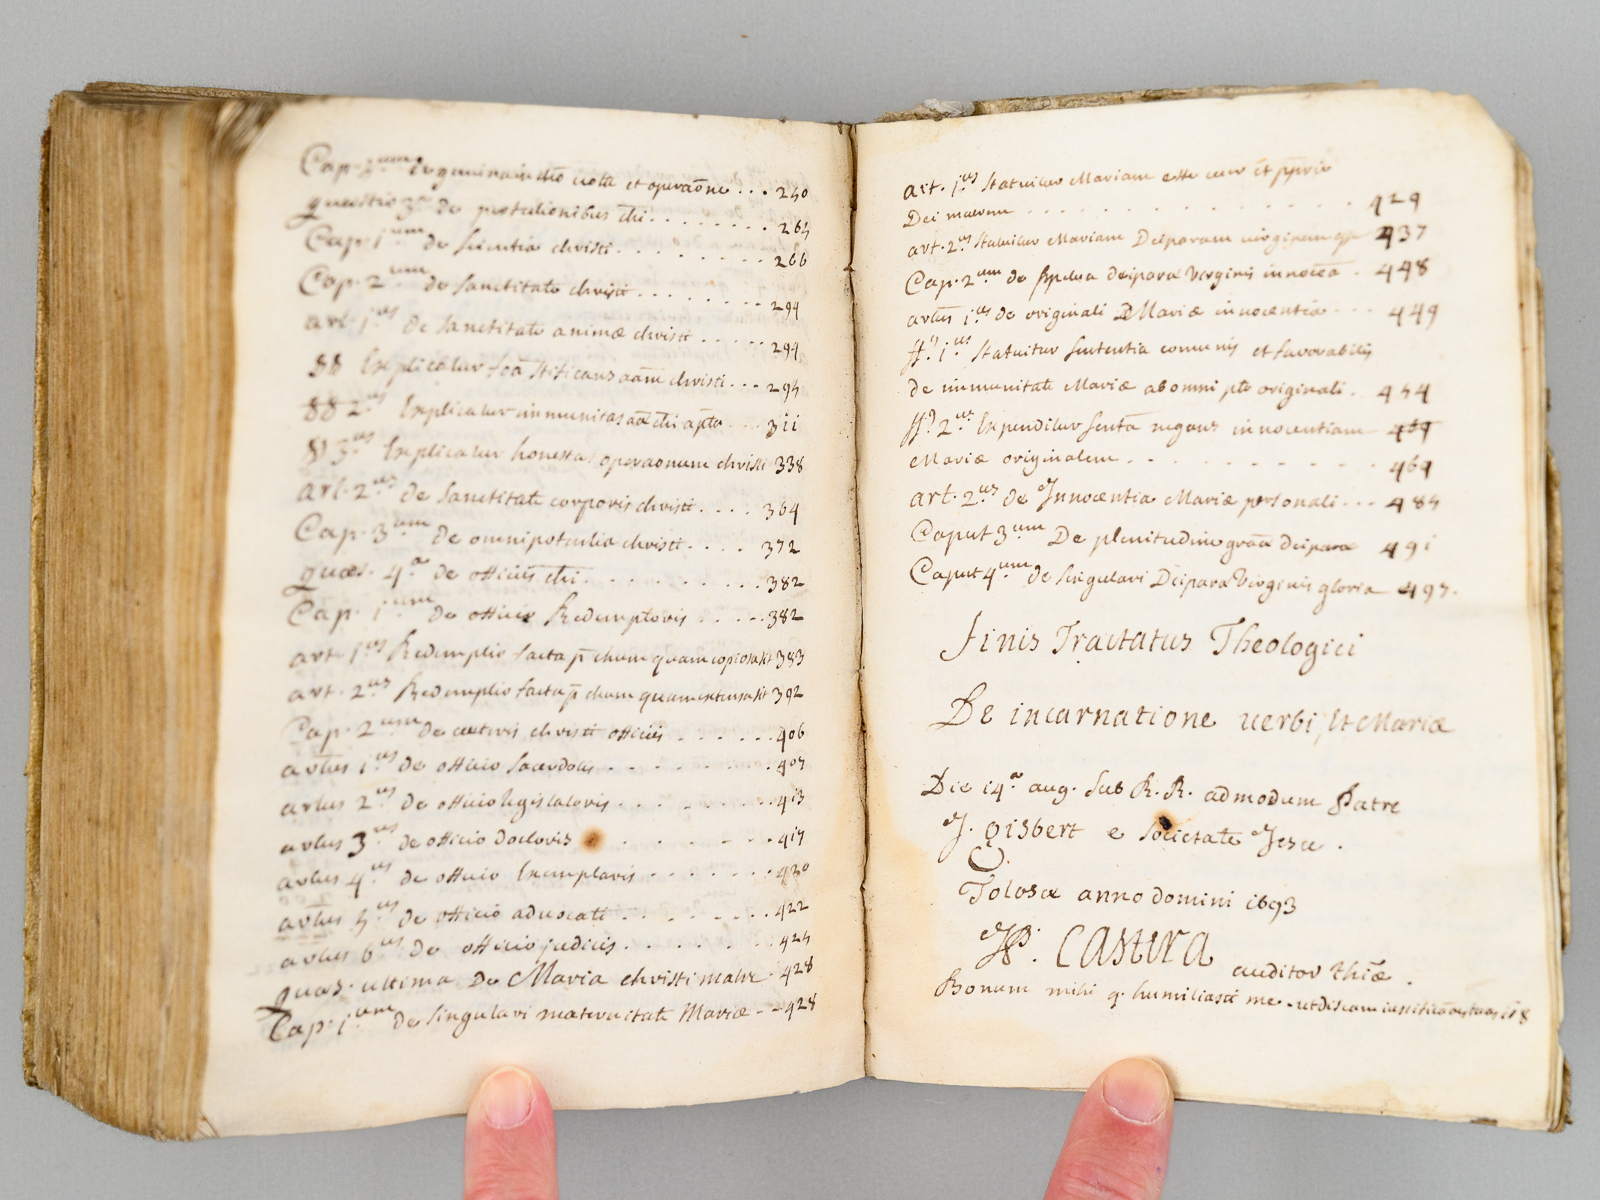 Cap. 2.um De gemina in chto volte et operaõne ... 240
quæstio 3.a De protestionibus chi ........ 264
Cap. 1.um De scientia christi ......... 266
Cap. 2.um De sanctitate christi ....... 294
art. 1.us De sanctitate animæ christi ..... 294
§§ Explicatur foã stificans aãm christi ... 294
§§ 2.us Explicatur immunitas aæ chi a pto ... 311
§§ 3.us Explicatur honestas operaonum christi 338
art. 2.us De sanctitate corporis christi .... 364
Cap. 3.um De omnipotentia christi .... 372
quæs. 4.a De officiis chi .......... 382
Cap. 1.um De officio Redemptoris ..... 382
art. 1.us Redemptio facta p chum quam copiosa sit 383
art. 2.us Redemptio facta p chum quam intensa sit 392
Cap. 2.um De cæteris christi officiis ...... 406
artus 1.us De officio sacerdotis ........ 407
artus 2.us De officio legislatoris ........ 413
artus 3.us De officio doctoris ..... 417
artus 4.us De officio Exemplaris ....... 420
artus 5.us De officio advocati ........ 422
artus 6.us De officio judicis ....... 424
quæs. ultima De Maria christi matre . 428
Cap. 1.um De singulari maternitate Mariæ - - 428
art. 1.us statuitur Mariam esse vere et pprie
Dei matrem . . . . . . . . . . . 429
art. 2.us statuitur Mariam Deiparam virginem esse 437
Cap. 2.um De Deiparæ Virginis innocẽa . 448
artus 1.us De originali D Mariæ innocentia ... 449
§§ 1.us statuitur sententia comunis et favorabilis
de immunitate Mariæ ab omni pto originali . 454
§§ 2.us Expenditur sentã negans innocentiam
Mariæ originalem . . . . . . . . . 469
art. 2.us De Innocentia Mariæ personali ... 484
Caput 3.um De plenitudine græ Deiparæ 491
Caput 4.um De singulari Deiparæ Virginis gloria 497.
Finis Tractatus Theologici
De incarnatione verbi, Et Mariæ
Die 14.a aug. sub R. R. admodum Patre
J. Gisbert e societate Jesu .
Tolosæ anno domini 1693
JP. CASTERA auditor thiæ .
Bonum mihi q. humiliasti me . ut discam iustificaõnes tuas 118